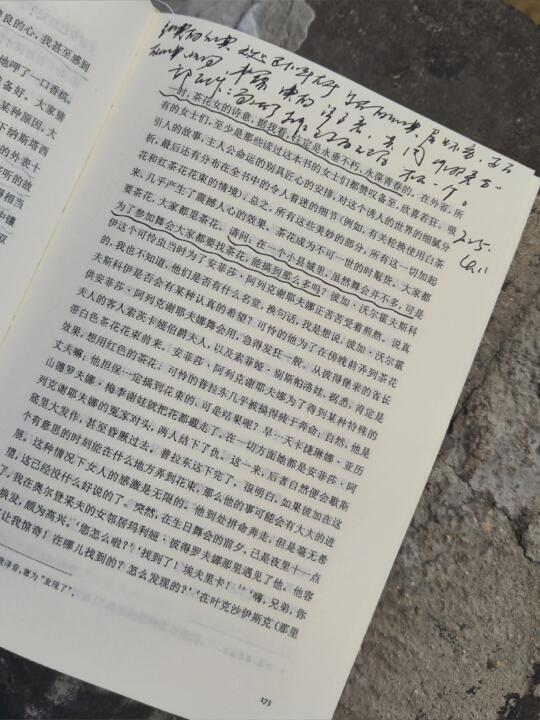 良的心，我甚至感到
地呷了一口香槟
备好。大家猜
某种原因，大
下纳斯塔西
的外表十
所的故
得相当
台镶
双
一时，茶花女的诗意，据我看，注定是永垂不朽、永葆青春的。在外省，所
有的女士们，至少是那些读过这本书的女士们都赞叹备至，欣喜若狂。吸
引人的故事，主人公命运的别具匠心的安排，对这个诱人的世界的细腻分
析，最后还有分布在全书中的令人着迷的细节（例如，有关轮换使用白茶
花和红茶花花束的情境），总之，所有这些美妙的部分，所有这一切加起
来，几乎产生了震撼人心的效果。茶花成为不可一世的时髦货。大家都
要茶花，大家都觅茶花。请问：在一个小县城里，虽然舞会并不多，可是
为了参加舞会大家都要找茶花，能搞到那么多吗？彼加·沃尔霍夫斯科
伊这个可怜虫当时为了安菲莎·阿列克谢耶夫娜正苦苦受着煎熬。说真
的，我也不知道，他们是否有什么名堂，换句话，我是想说，彼加·沃尔霍
夫斯科伊是否会有某种认真的希望？可怜的他为了在傍晚前弄到茶花
供安菲莎·阿列克谢耶夫娜舞会用，急得发狂一般。从彼得堡来的省长
夫人的客人索茨卡娅伯爵夫人，以及索菲娅·别斯帕洛娃，据悉，肯定是
带白色茶花花束前来。安菲莎·阿列克谢耶夫娜为了得到某种特殊的
效果，想用红色的茶花。可怜的普拉东几乎被搞得疲于奔命；自然，他是
丈夫嘛；他担保一定搞到花束的。可是结果呢？早一天卡捷琳娜·亚历
山德罗夫娜·梅季谢娃就把花都截走了，在一切方面她都是安菲莎·阿
列克谢耶夫娜的冤家对头，两人结下了仇。这一来，后者自然便会歇斯
底里大发作，甚至昏厥过去。普拉东这下完了。很明白，如果彼加在这
个有意思的时刻能在什么地方弄到花束，那么他的事可能会有大大的进
展。这种情况下女人的感激是无限的。他到处拼命奔走，但是毫无希
望，这已经没什么好说的了。突然，在生日舞会的前夕，已是夜里十一点
了，我在奥尔登采夫的女邻居玛利娅·彼得罗夫娜那里遇见了他。他容
焕发，颇为高兴。‘您怎么啦？’‘找到了！埃夫里卡！’‘嗬，兄弟，你
让我惊奇！在哪儿找到的？怎么发现的？’‘在叶克沙伊斯克（那里
译音，意为“发现了”。
173